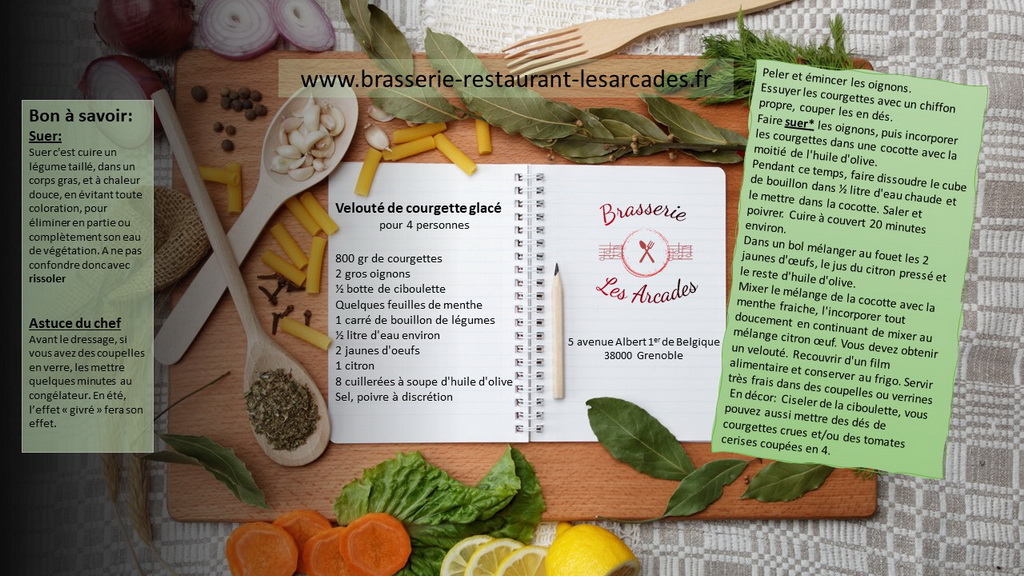 www.brasserie-restaurant-lesarcades.fr
Bon à savoir:
Suer:
Suer c'est cuire un
légume taillé, dans un
corps gras, et à chaleur
douce, en évitant toute
coloration, pour
éliminer en partie ou
complètement son eau
de végétation. A ne pas
confondre donc avec
rissoler
Astuce du chef
Avant le dressage, si
vous avez des coupelles
en verre, les mettre
quelques minutes au
congélateur. En été,
l'effet « givré » fera son
effet.
Velouté de courgette glacé
pour 4 personnes
800 gr de courgettes
2 gros oignons
½ botte de ciboulette
Quelques feuilles de menthe
1 carré de bouillon de légumes
½ litre d'eau environ
2 jaunes d'oeufs
1 citron
8 cuillerées à soupe d'huile d'olive
Sel, poivre à discrétion
Brasserie
Les Arcades
5 avenue Albert 1er de Belgique
38000 Grenoble
Peler et émincer les oignons.
Essuyer les courgettes avec un chiffon
propre, couper les en dés.
Faire suer* les oignons, puis incorporer
les courgettes dans une cocotte avec la
moitié de l'huile d'olive.
Pendant ce temps, faire dissoudre le cube
de bouillon dans ½ litre d'eau chaude et
le mettre dans la cocotte. Saler et
poivrer. Cuire à couvert 20 minutes
environ.
Dans un bol mélanger au fouet les 2
jaunes d'œufs, le jus du citron pressé et
le reste d'huile d'olive.
Mixer le mélange de la cocotte avec la
menthe fraiche, l'incorporer tout
doucement en continuant de mixer au
mélange citron œuf. Vous devez obtenir
un velouté. Recouvrir d'un film
alimentaire et conserver au frigo. Servir
très frais dans des coupelles ou verrines
En décor: Ciseler de la ciboulette, vous
pouvez aussi mettre des dés de
courgettes crues et/ou des tomates
cerises coupées en 4.